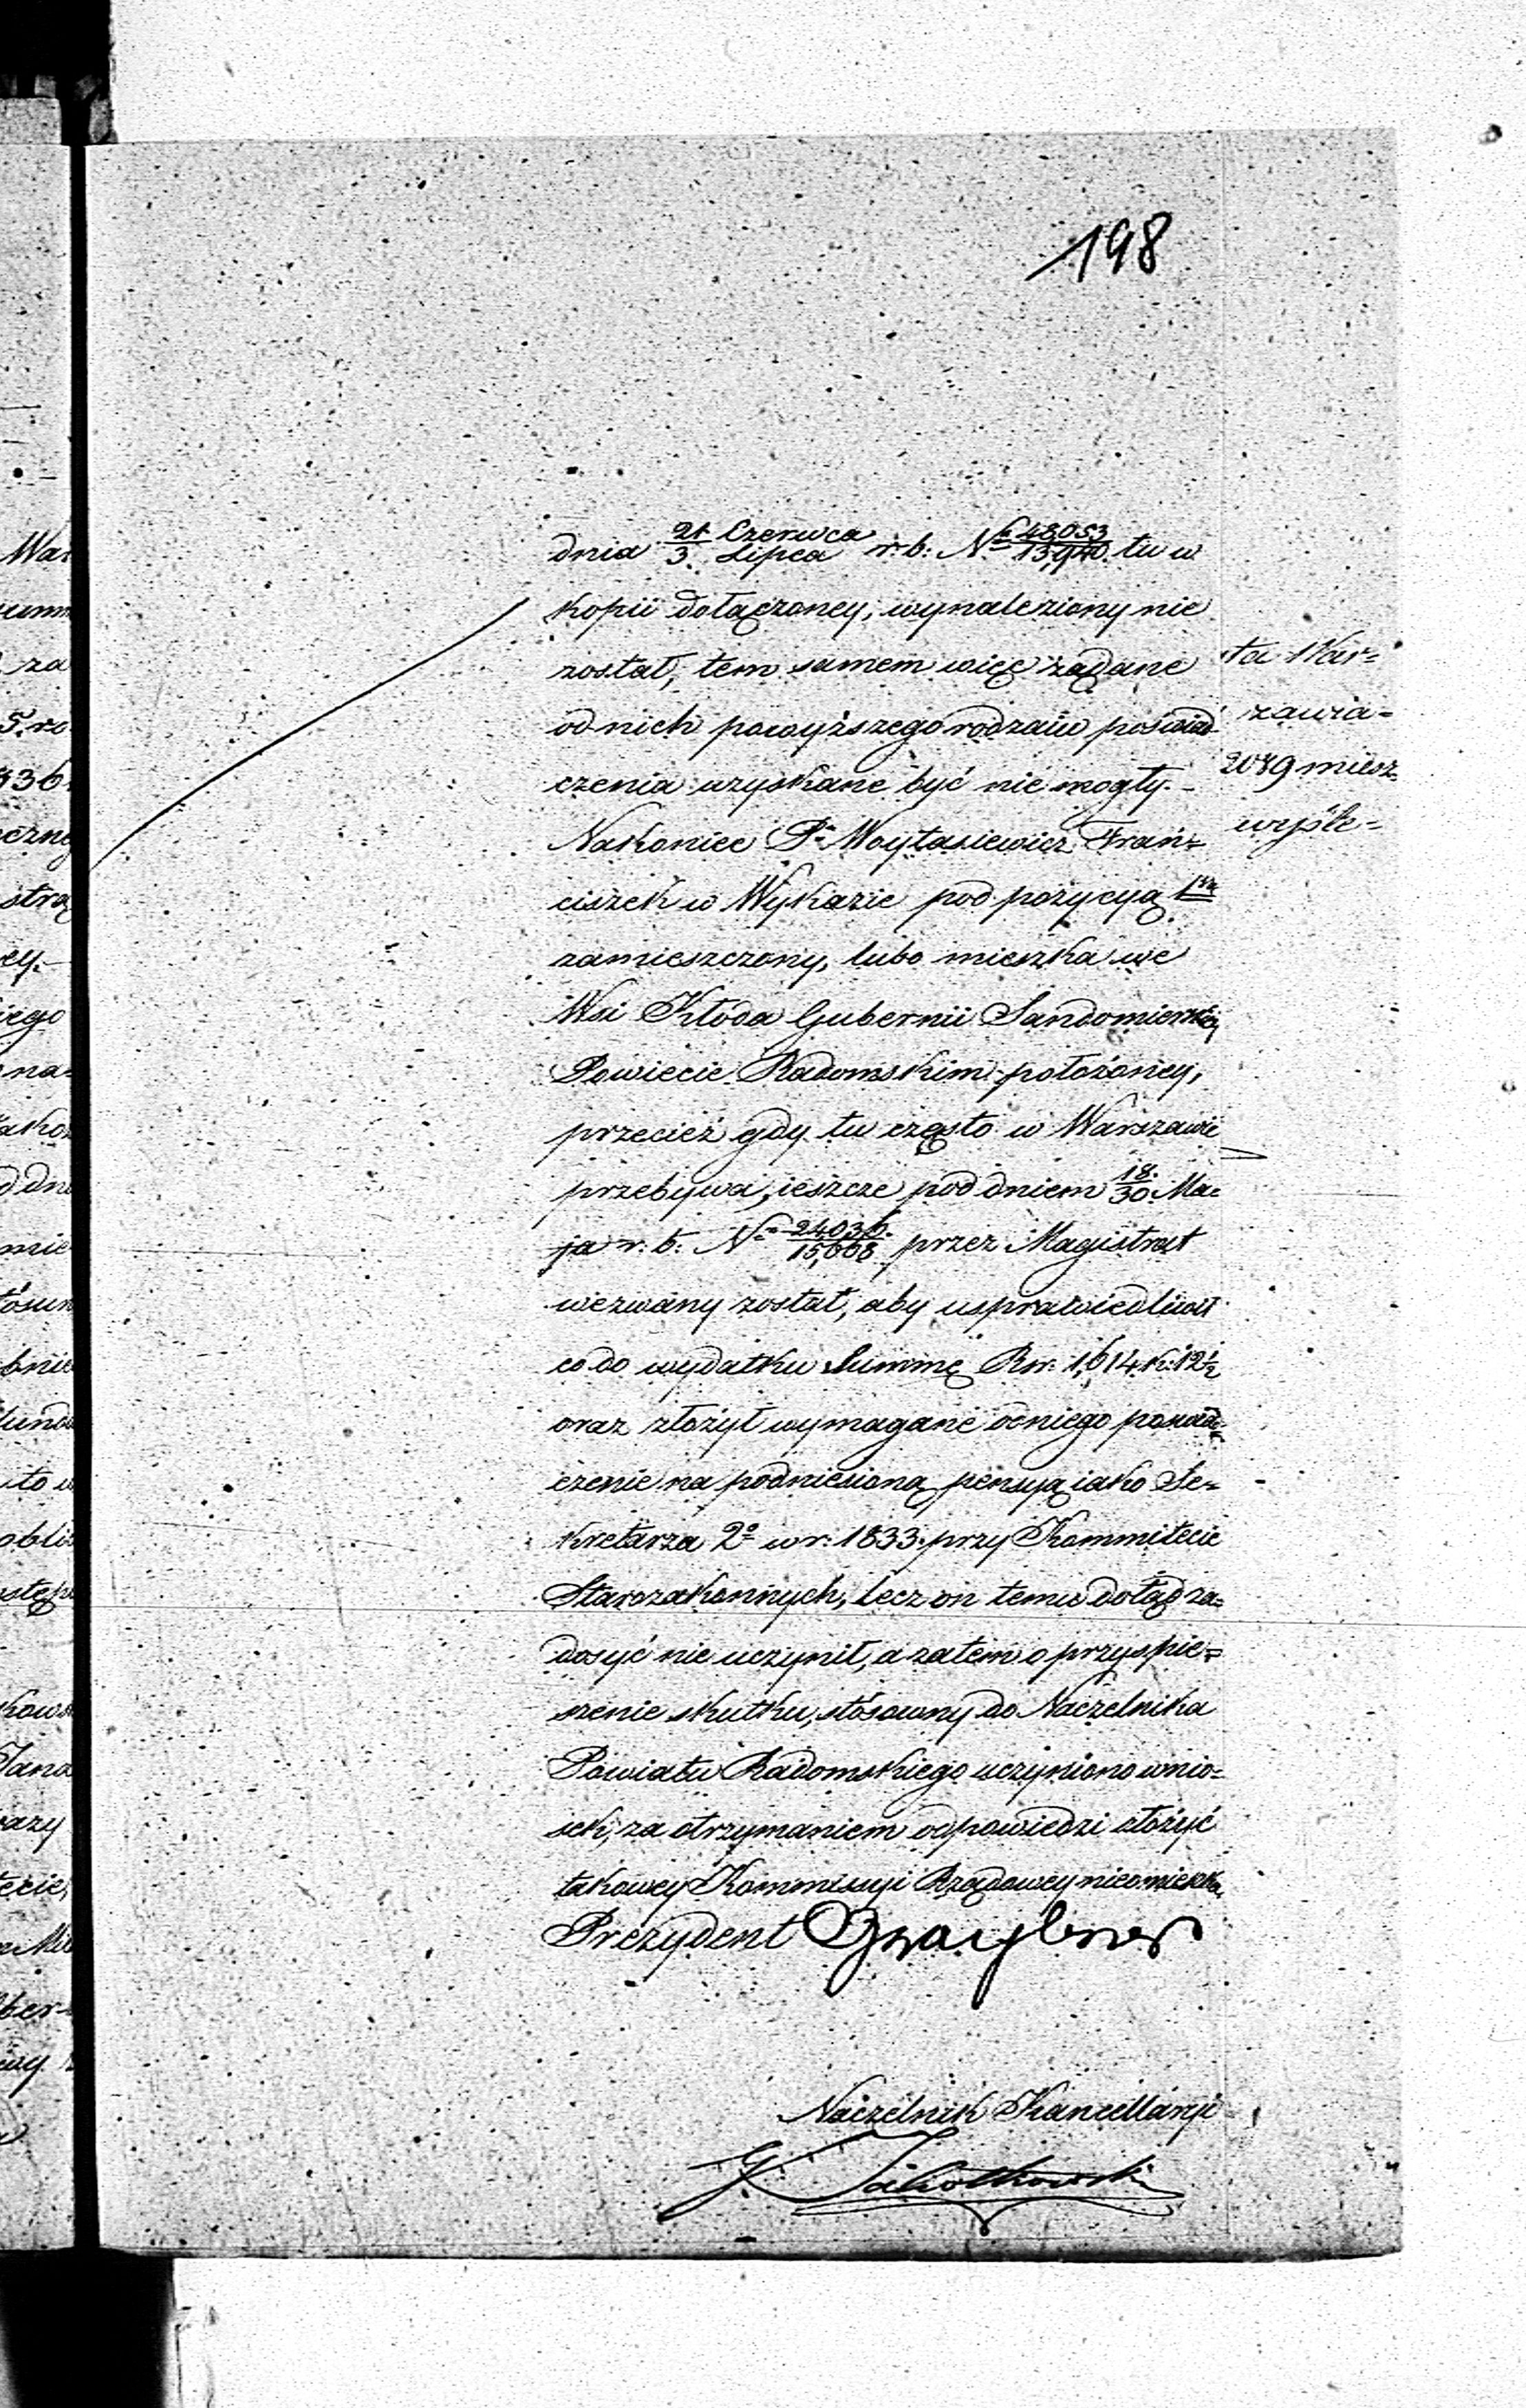 198
dnia 21 Czerwca / 3. Lipca r. b: No 48,053 / 13,940. tu w
kopii dołączoney, wynaleziony nie
został, tem samem więc żądane
od nich powyższego rodzaiu poswiad-
czenia uzyskane być nie mogły. -
Nakoniec Pn Woytasiewicz Fran=
ciszek w Wykazie pod pozycyą 1wa
zamieszczony, lubo mieszka we
Wsi Kłoda Gubernii Sandomierskiey
Powiecie Radomskim położoney,
przecież gdy tu często w Warszawie
przebywa, ieszcze pod dniem 18. / 30. Ma=
ja r. b: No 24,036. / 15,668 przez Magistrat
wezwany został, aby usprawiedliwił
co do wydatku Summę Rsr: 1,614 k: 12½
oraz złożył wymagane od niego poswiad=
czenie na podniesioną pensyą iako Se=
kretarza 2o w r: 1833. przy Kommitecie
Starozakonnych, lecz on temu dotąd za=
dosyć nie uczynił, a zatem o przyspie=
szenie skutku, stósowny do Naczelnika
Powiatu Radomskiego uczyniono wnio=
sek, za otrzymaniem odpowiedzi złożyć
takowey Kommisyi Rządowey nieomieszka
Prezydent Graybner
Naczelnik Kancellaryi
ta War=
zawia=
2089 miesz
wyśle=